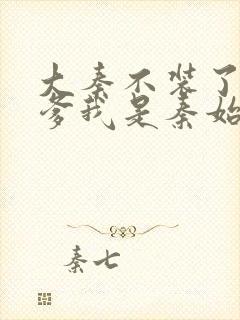 大秦不装了
爹我是秦始
秦七